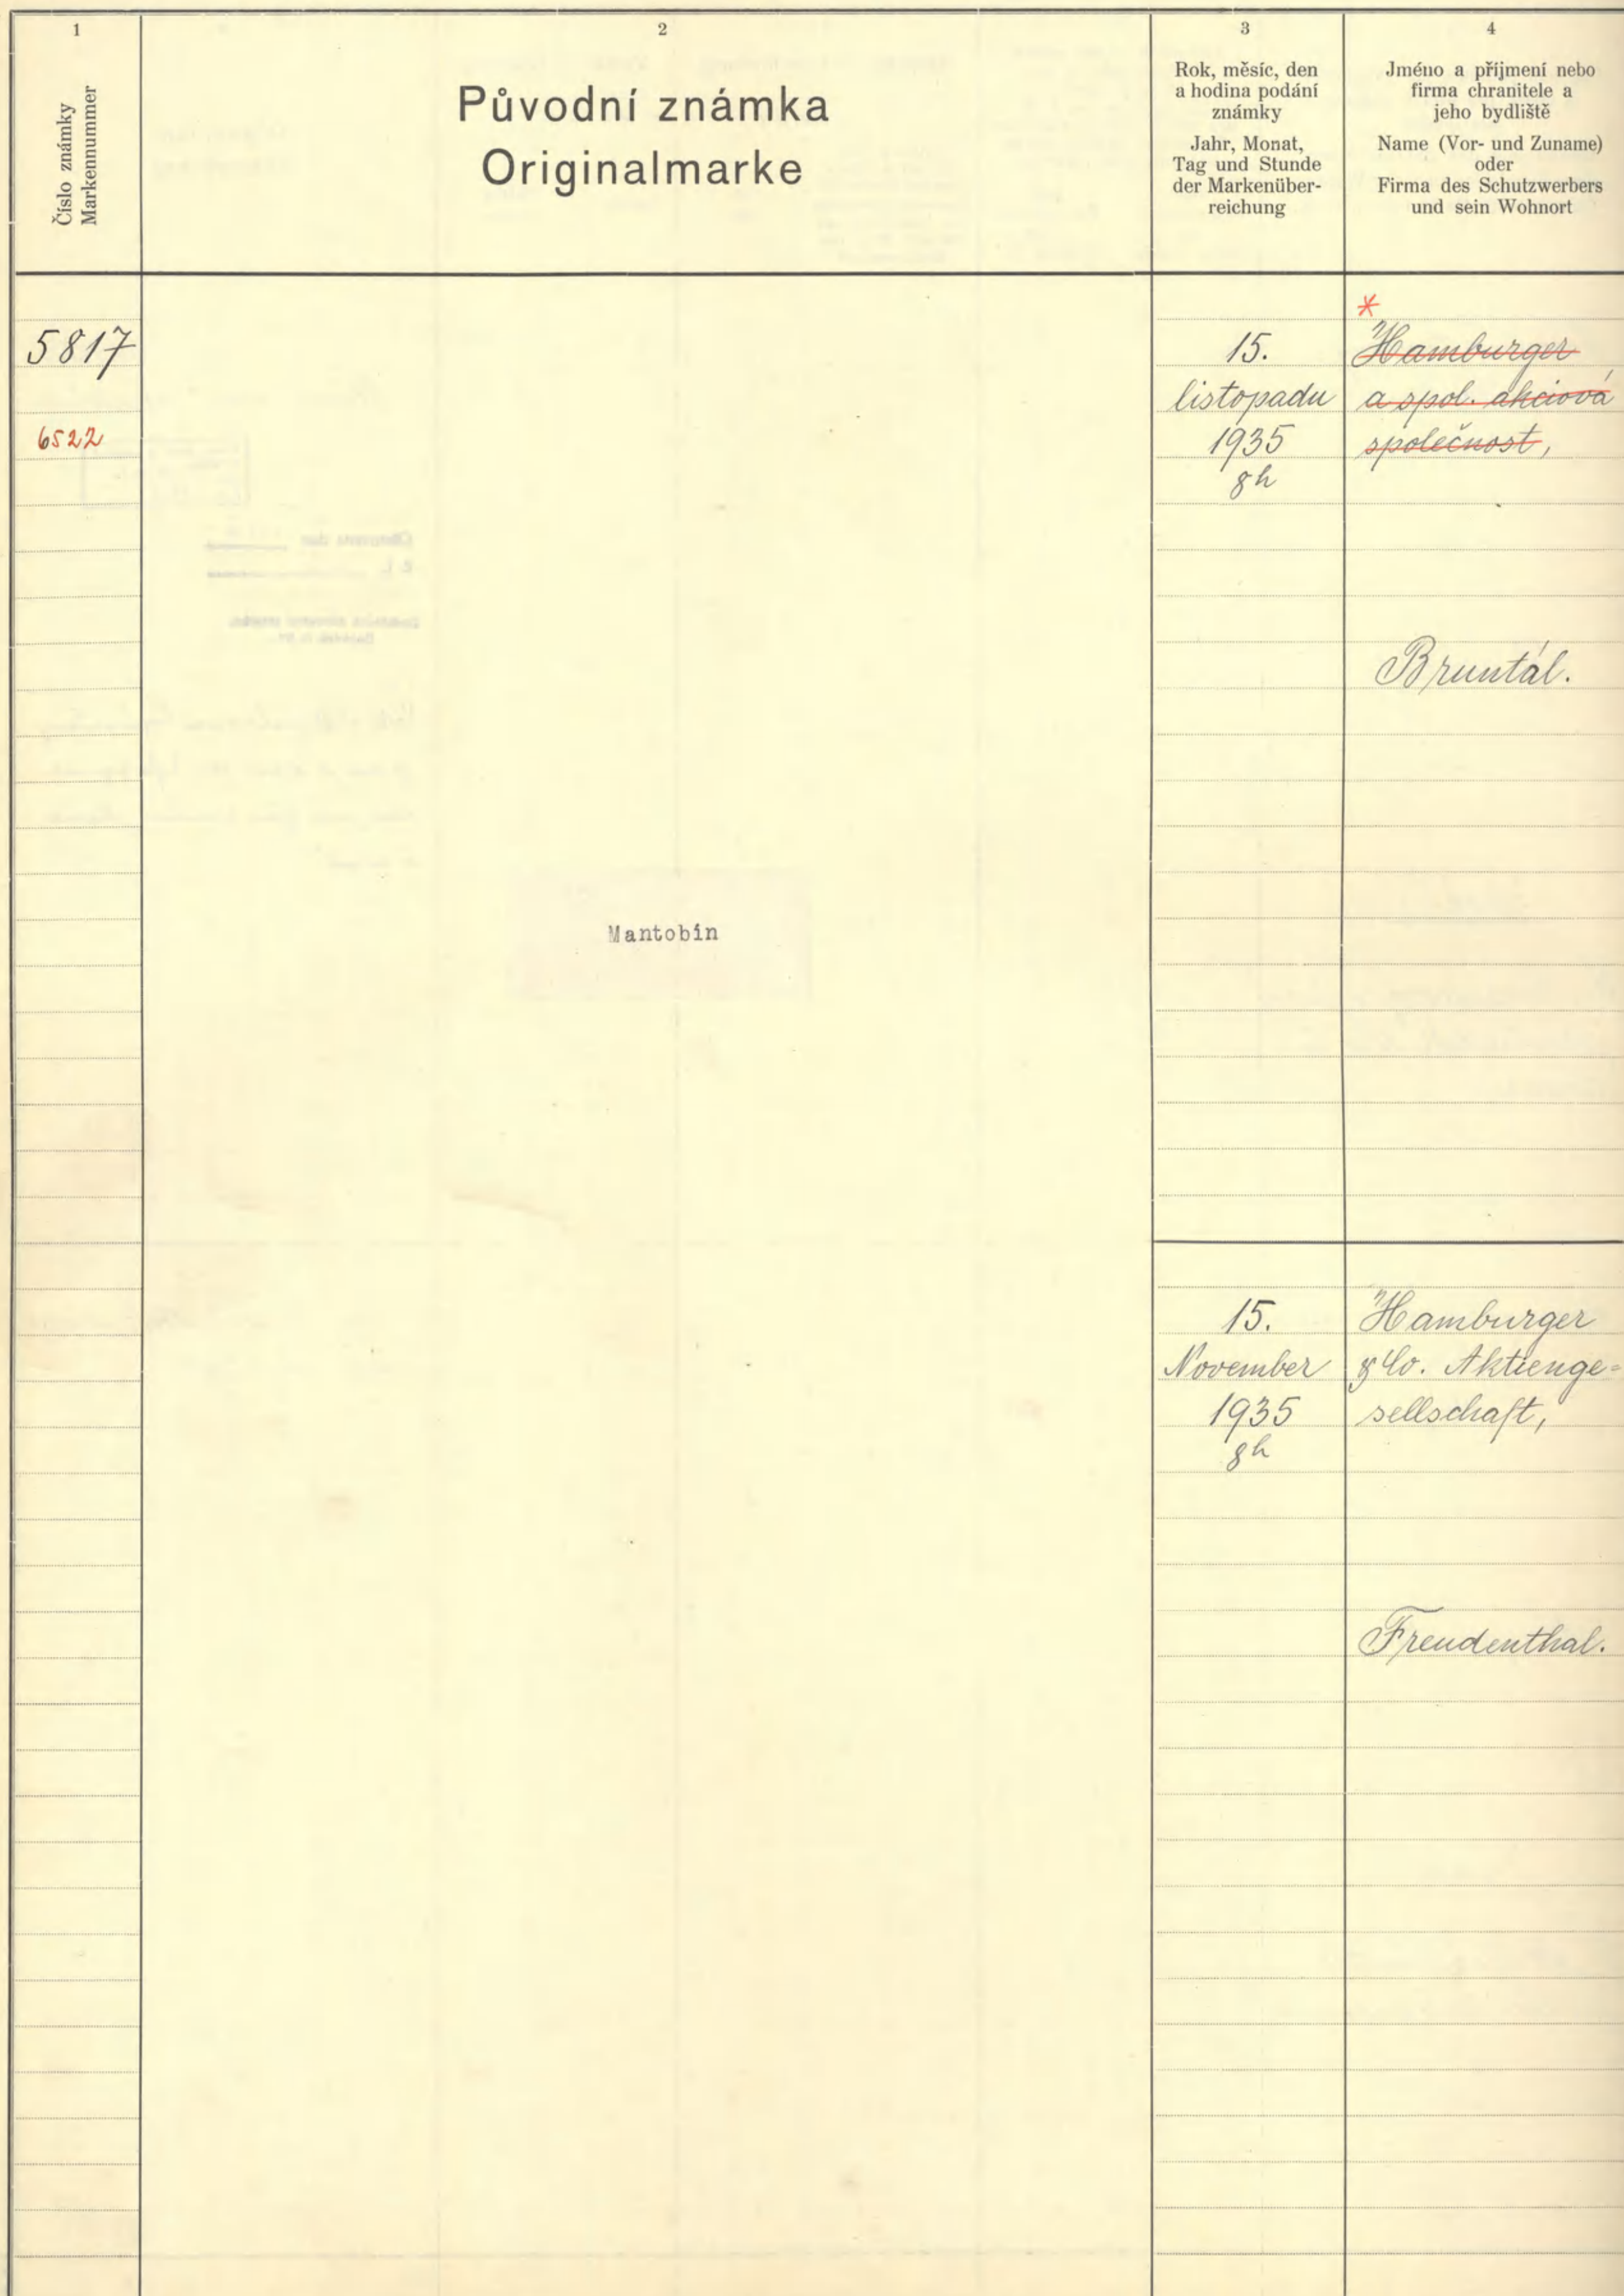 1
Číslo známky
Markennummer
2
Původní známka
Originalmarke
3
Rok, měsíc, den
a hodina podání
známky
Jahr, Monat,
Tag und Stunde
der Markenüber-
reichung
4
Jméno a příjmení nebo
firma chranitele a
jeho bydliště
Name (Vor- und Zuname)
oder
Firma des Schutzwerbers
und sein Wohnort
5817
6522
Mantobin
15.
listopadu
1935
8h
*
Hamburger
a spol. akciová
společnost,
Bruntál.
15.
November
1935
8h
Hamburger
& Co. Aktienge=
sellschaft,
Freudenthal.